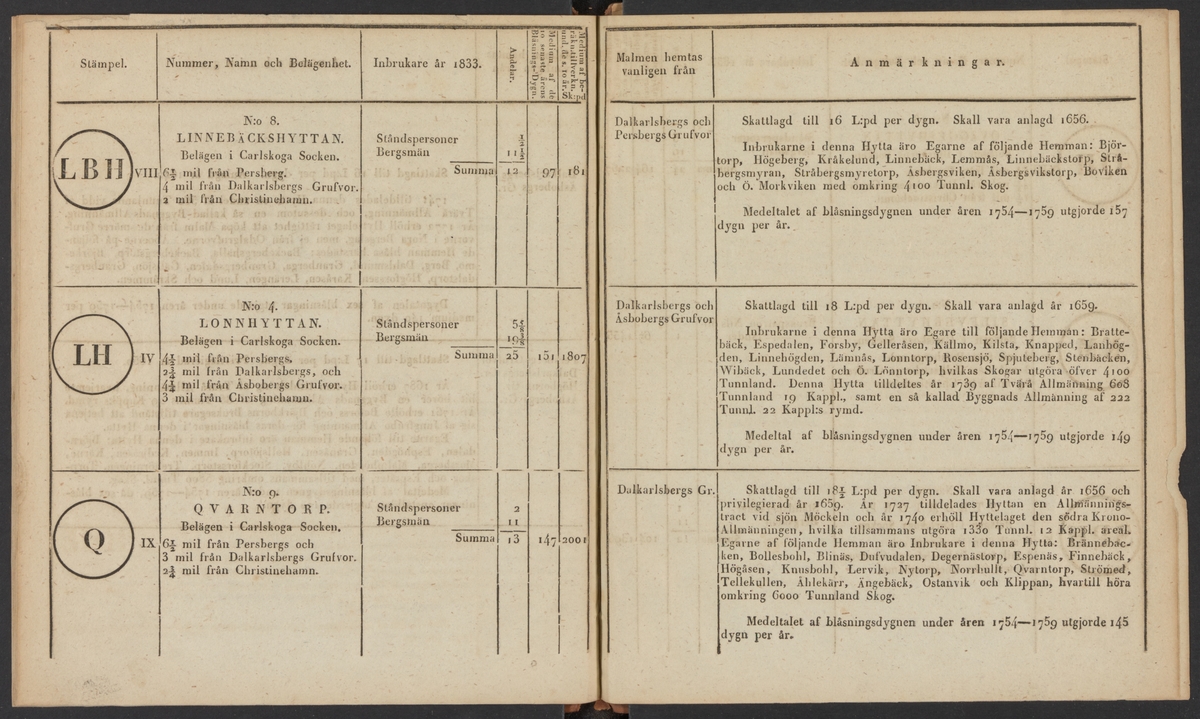 Stämpel.
Nummer, Namn och Belägenhet.
Inbrukare år 1833.
Andelar.
Medium af de
10 senaste årens
Blåsnings-Dygn.
Medium af be-
räkn. tillverkn.
und. de s. 10 år.
Sk:pd
LBH
VIII
N:o 8.
LINNEBÄCKSHYTTAN.
Belägen i Carlskoga Socken.
6½ mil från Persberg.
4 mil från Dalkarlsbergs Grufvor.
2 mil från Christinehamn.
Ståndspersoner ½
Bergsmän 11½
Summa 12 97 181
LH
IV
N:o 4.
LONNHYTTAN.
Belägen i Carlskoga Socken.
4½ mil från Persbergs.
2¾ mil från Dalkarlsbergs, och
4¼ mil från Åsbobergs Grufvor.
3 mil från Christinehamn.
Ståndspersoner
Bergsmän
Summa 25 151 1807
Q
IX
N:o 9.
QVARNTORP.
Belägen i Carlskoga Socken,
6½ mil från Persbergs och
3 mil från Dalkarlsbergs Grufvor.
2¾ mil från Christinehamn.
Ståndspersoner 2
Bergsmän 11
Summa 13 147 2001
Malmen hemtas
vanligen från
Anmärkningar.
Dalkarlsbergs och
Persbergs Grufvor
Skattlagd till 16 L:pd per dygn. Skall vara anlagd 1656.
Inbrukarne i denna Hytta äro Egarne af följande Hemman: Björ-
torp, Högeberg, Kråkelund, Linnebäck, Lemmås, Linnebäckstorp, Strå-
bergsmyran, Stråbergsmyretorp, Åsbergsviken, Åsbergsvikstorp, Boviken
och Ö. Morkviken med omkring 4100 Tunnl. Skog.
Medeltalet af blåsningsdygnen under åren 1754—1759 utgjorde 157
dygn per år.
Dalkarlsbergs och
Åsbobergs Grufvor
Skattlagd till 18 L:pd per dygn. Skall vara anlagd år 1659.
Inbrukarne i denna Hytta äro Egare till följande Hemman: Bratte-
bäck, Espedalen, Forsby, Gelleråsen, Källmo, Kilsta, Knapped, Lanhög-
den, Linnehögden, Lämnås, Lonntorp, Rosensjö, Spjuteberg, Stenbäcken,
Wibäck, Lundedet och Ö. Lönntorp, hvilkas Skogar utgöra öfver 4100
Tunnland. Denna Hytta tilldeltes år 1739 af Tvärå Allmänning 608
Tunnland 19 Kappl., samt en så kallad Byggnads Allmänning af 222
Tunnl. 22 Kappl:s rymd.
Medeltal af blåsningsdygnen under åren 1754—1759 utgjorde 149
dygn per år.
Dalkarlsbergs Gr.
Skattlagd till 18½ L:pd per dygn. Skall vara anlagd år 1656 och
privilegierad år 1659. År 1727 tilldelades Hyttan en Allmännings-
tract vid sjön Möckeln och år 1740 erhöll Hyttelaget den södra Krono-
Allmänningen, hvilka tillsammans utgöra 1330 Tunnl. 12 Kappl. areal.
Egarne af följande Hemman äro Inbrukare i denna Hytta: Brännebäc-
ken, Bollesbohl, Blinäs, Dufvudalen, Degernästorp, Espenäs, Finnebäck,
Högåsen, Knusbohl, Lervik, Nytorp, Norrhullt, Qvarntorp, Strömed,
Tellekullen, Åhlekärr, Ängebäck, Ostanvik och Klippan, hvartill höra
omkring 6000 Tunnland Skog.
Medeltalet af blåsningsdygnen under åren 1754—1759 utgjorde 145
dygn per år.